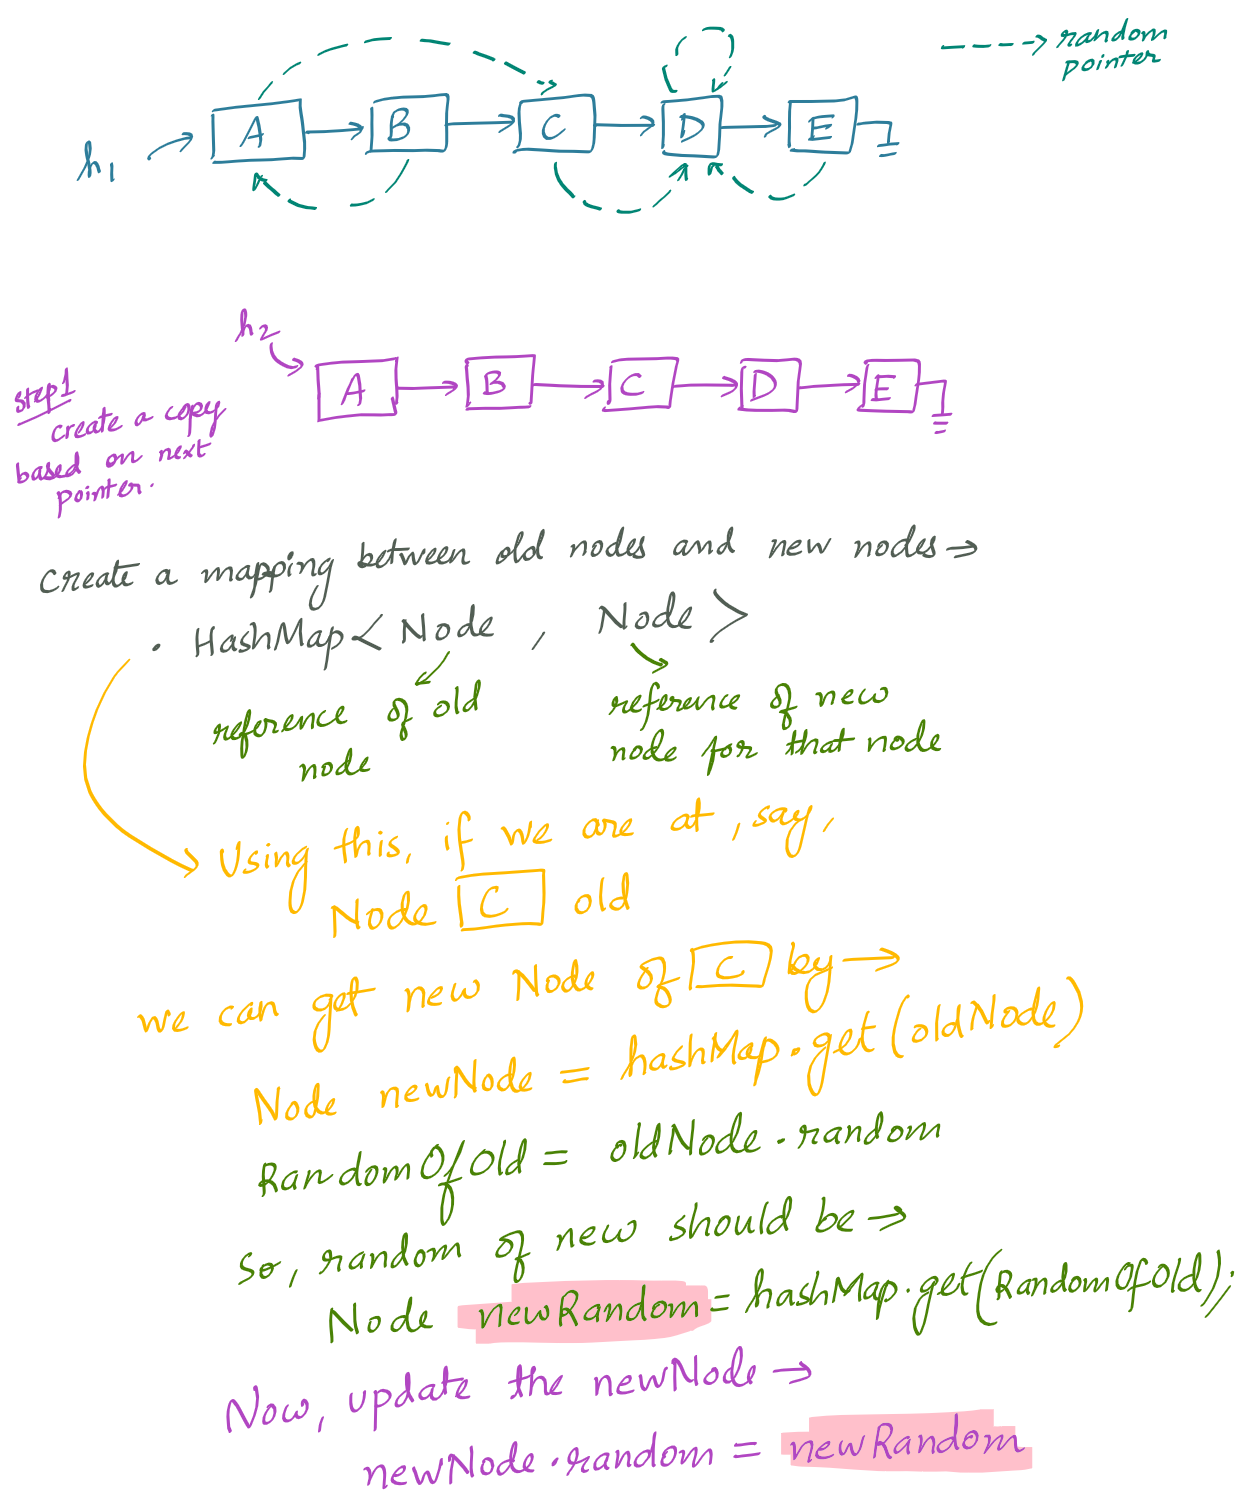 random
pointer
h1 A B C D E
h2
A B C D E
step1
create a copy
based on next
pointer.
Create a mapping between old nodes and new nodes ⇒
. HashMap < Node , Node >
reference of old
node
reference of new
node for that node
Using this, if we are at, say,
Node C old
we can get new Node of C by →
Node newNode = hashMap.get(oldNode)
RandomOfOld = oldNode.random
So, random of new should be →
Node newRandom = hashMap.get(RandomOfOld);
Now, update the newNode →
newNode.random = newRandom